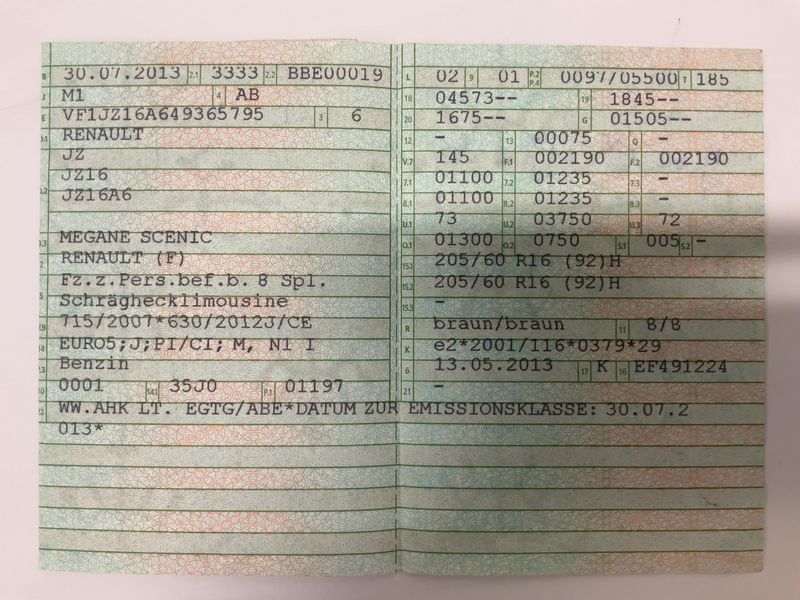 B 30.07.2013 2.1 3333 2.2 BBE00019
J M1 4 AB
E VF1JZ16A649365795 3 6
D.1 RENAULT
JZ
JZ16
D.2 JZ16A6
D.3 MEGANE SCENIC
2 RENAULT (F)
Fz.z.Pers.bef.b. 8 Spl.
5 Schräghecklimousine
V.9 715/2007*630/2012J/CE
14 EURO5;J;PI/CI; M, N1 I
Benzin
10 0001 14.1 35J0 P.1 01197
L 02 9 01 P.2 P.4 0097/05500 T 185
18 04573-- 19 1845--
20 1675-- G 01505--
12 - 13 00075 Q -
V.7 145 F.1 002190 F.2 002190
7.1 01100 7.2 01235 7.3 -
8.1 01100 8.2 01235 8.3 -
U.1 73 U.2 03750 U.3 72
O.1 01300 O.2 0750 S.1 005 S.2 -
15.1 205/60 R16 (92)H
15.2 205/60 R16 (92)H
15.3 -
R braun/braun 11 8/8
K e2*2001/116*0379*29
6 13.05.2013 17 K 16 EF491224
21 -
22 WW.AHK LT. EGTG/ABE*DATUM ZUR EMISSIONSKLASSE: 30.07.2
013*